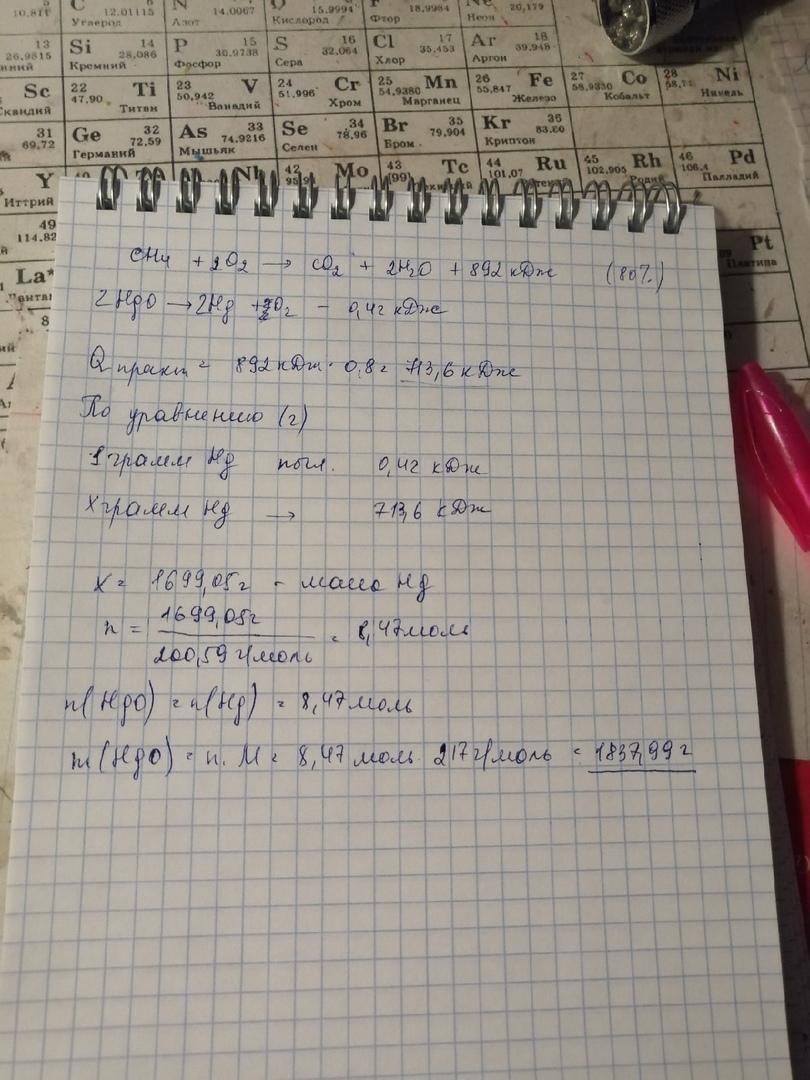 C 12.01115 N 14.0067 15.9994 O 18.9984 F Ne 20,179
10,811 Углерод Азот Кислород Фтор Неон
13 Si 14 P 15 S 16 Cl 17 Ar 18
26,9815 28,086 30,9738 32,064 35,453 39,948
Кремний Фосфор Сера Хлор Аргон
Sc 22 Ti 23 V 24 Cr 25 Mn 26 Fe 27 Co 28 Ni
47,90 50,942 51,996 54,9380 55,847 58,9330
Скандий Титан Ванадий Хром Марганец Железо Кобальт Никель
31 Ge 32 As 33 Se 34 Br 35 Kr 36
69,72 72,59 74,9216 78,96 79,904 83,80
Германий Мышьяк Селен Бром Криптон
Y Nb 42 Mo 43 Tc 44 Ru 45 Rh 46 Pd
(99) 101,07 102,905 106,4
Иттрий Родий Палладий
49
114,82 Pt
La* Платина
CH4 + 2O2 → CO2 + 2H2O + 892 кДж (80%)
2HgO → 2Hg + O2 - 0,42 кДж
Q практ = 892 кДж · 0,8 = 713,6 кДж
По уравнению (2)
1 грамм Hg погл. 0,42 кДж
X грамм Hg → 713,6 кДж
X = 1699,05г - масса Hg
n = 1699,05г / 200,59 г/моль = 8,47 моль
n(HgO) = n(Hg) = 8,47 моль
m(HgO) = n · M = 8,47 моль · 217 г/моль = 1837,99 г